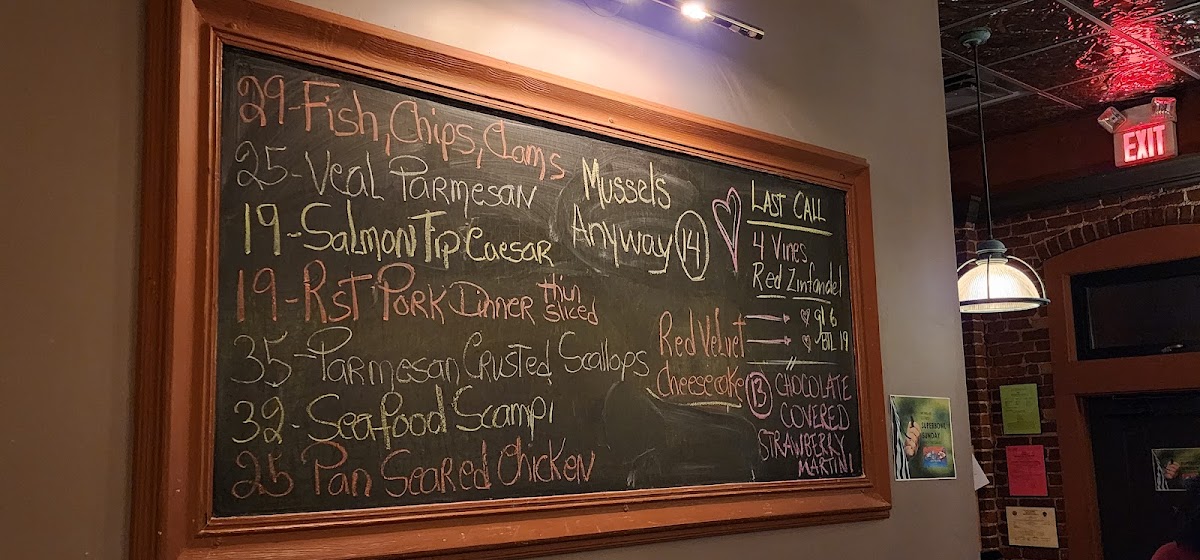 29-Fish, Chips, Clams
25-Veal Parmesan
19-Salmon Tip Caesar
19-Rst Pork Dinner thin sliced
35-Parmesan Crusted Scallops
32-Seafood Scampi
25 Pan Seared Chicken
Mussels
Anyway 14
Red Velvet
Cheesecake
LAST CALL
4 Vines
Red Zinfandel
gl 6
BTL 19
13 CHOCOLATE
COVERED
STRAWBERRY
MARTINI
SUPERBOWL
SUNDAY
EXIT